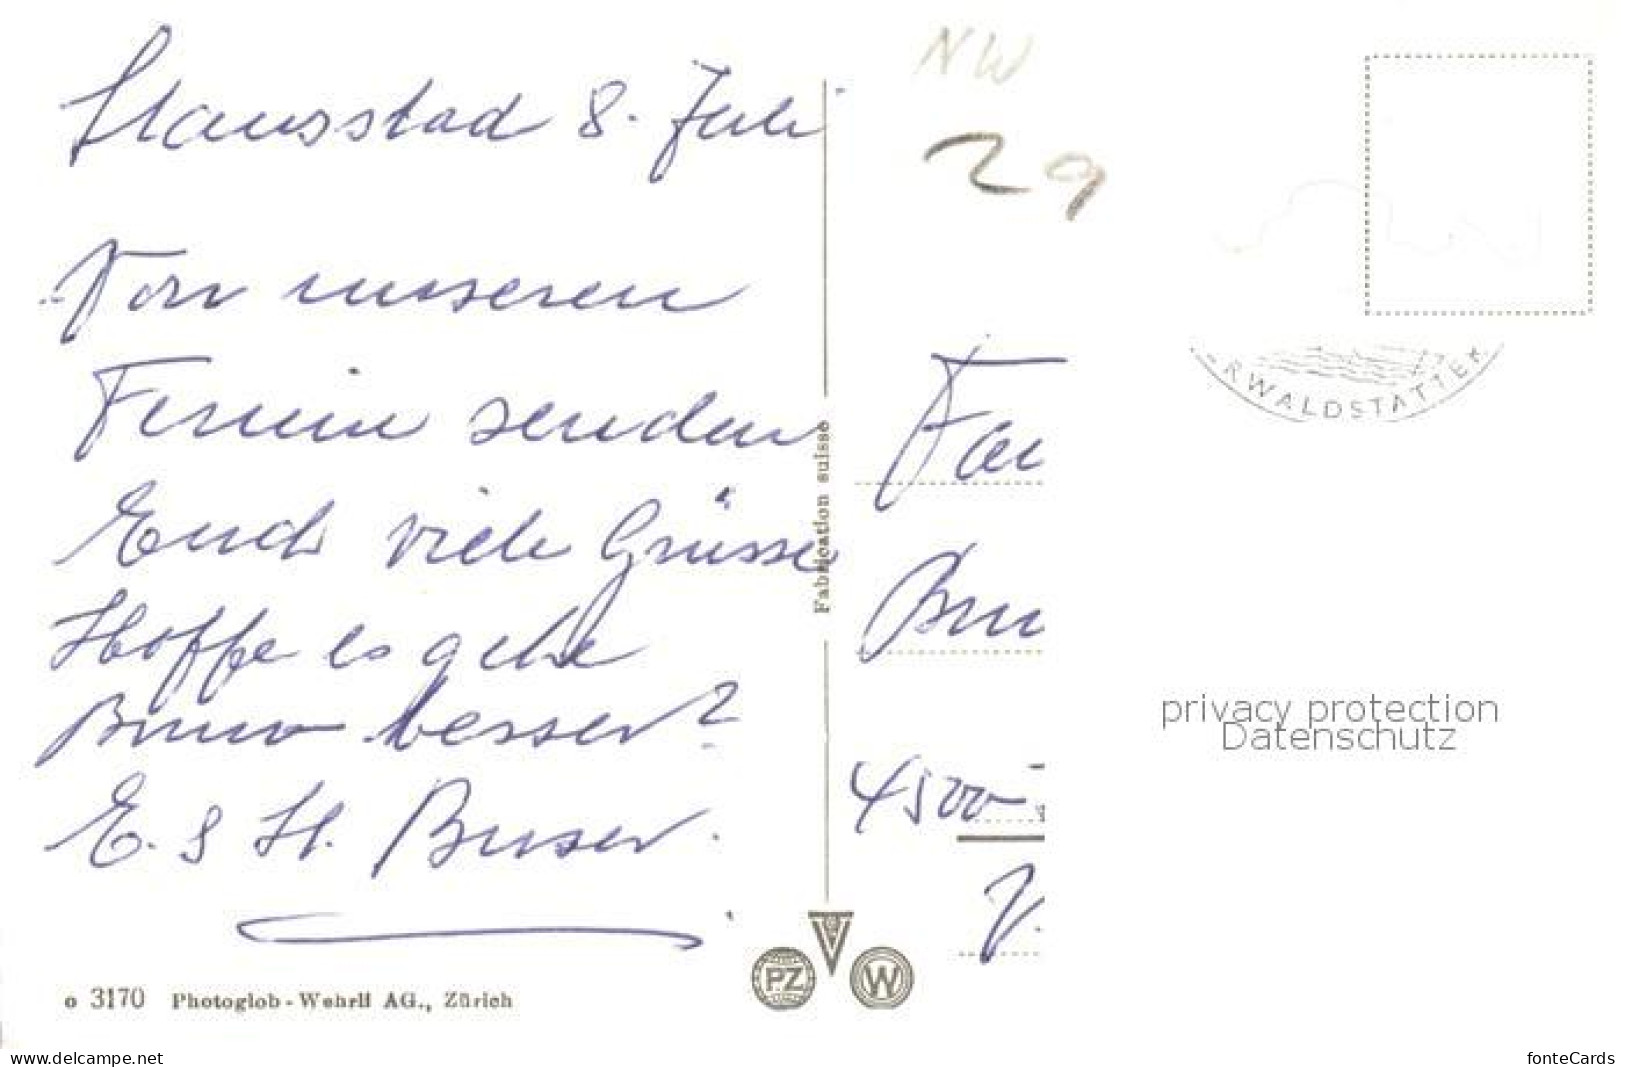 Stansstad 8. Juli
Von unseren
Ferien senden
Euch viele Grüsse
Hoffe es gehe
Bruno besser?
E. & H. Buser.
NW
29
RWALDSTÄTTER
Fabrication suisse
4500
privacy protection
Datenschutz
PZ
W
o 3170 Photoglob-Wehrli AG., Zürich
www.delcampe.net
fonteCards